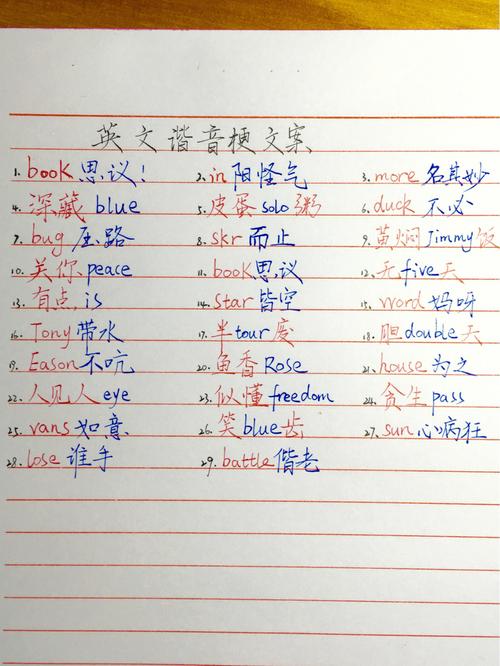 英文谐音梗文案
1. book思议! 2. in阳怪气 3. more名其妙
4. 深藏blue 5. 皮蛋solo粥 6. duck不必
7. bug压路 8. skr而止 9. 黄焖Jimmy饭
10. 关你peace 11. book思议 12. 无five天
13. 有点is 14. star皆空 15. word妈呀
16. Tony带水 17. 半tour废 18. 胆double天
19. Eason不吭 20. 鱼香Rose 21. house为之
22. 人见人eye 23. 似懂freedom 24. 贪生pass
25. vans如意 26. 笑blue齿 27. sun心病狂
28. lose谁手 29. battle偕老